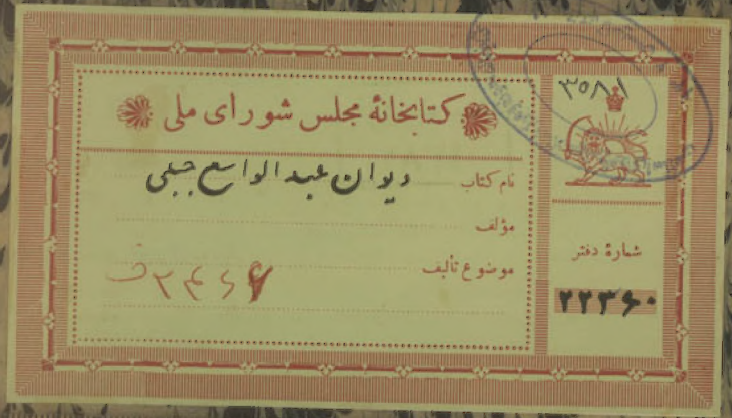 کتابخانهٔ مجلس شورای ملی
نام کتاب دیوان عبدالواسع جبلی
مؤلف
موضوع تألیف
۳۵۸۱
شمارهٔ دفتر
۲۲۳۶۰